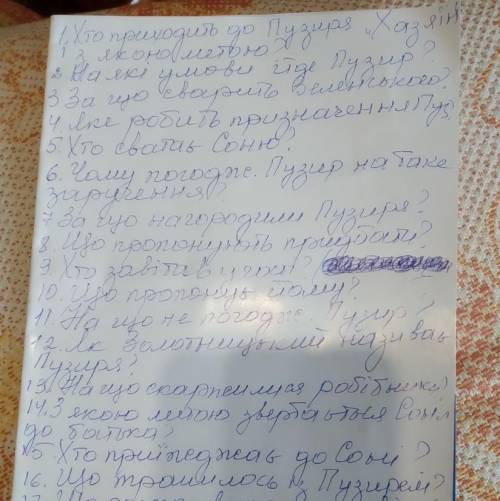 1. Хто приходить до Пузиря „Хазяїн
1 З якою метою?
2. На які умови йде Пузир?
3. За що сварить Зеленського?
4. Яке робить призначення Пуз
5. Хто сватає Соню?
6. Чому погодж. Пузир на таке
заручення?
7. За що нагородили Пузиря?
8. Що пропонують придбати?
9. Хто завітав у гості?
10. Що пропонує йому?
11. На що не погодж. Пузир?
12. Як Золотницький називає
Пузиря?
13. На що скаржилися робітники?
14. З якою метою звертається Соня
до батька?
15. Хто приїжджає до Соні?
16. Що трапилось із Пузирем?